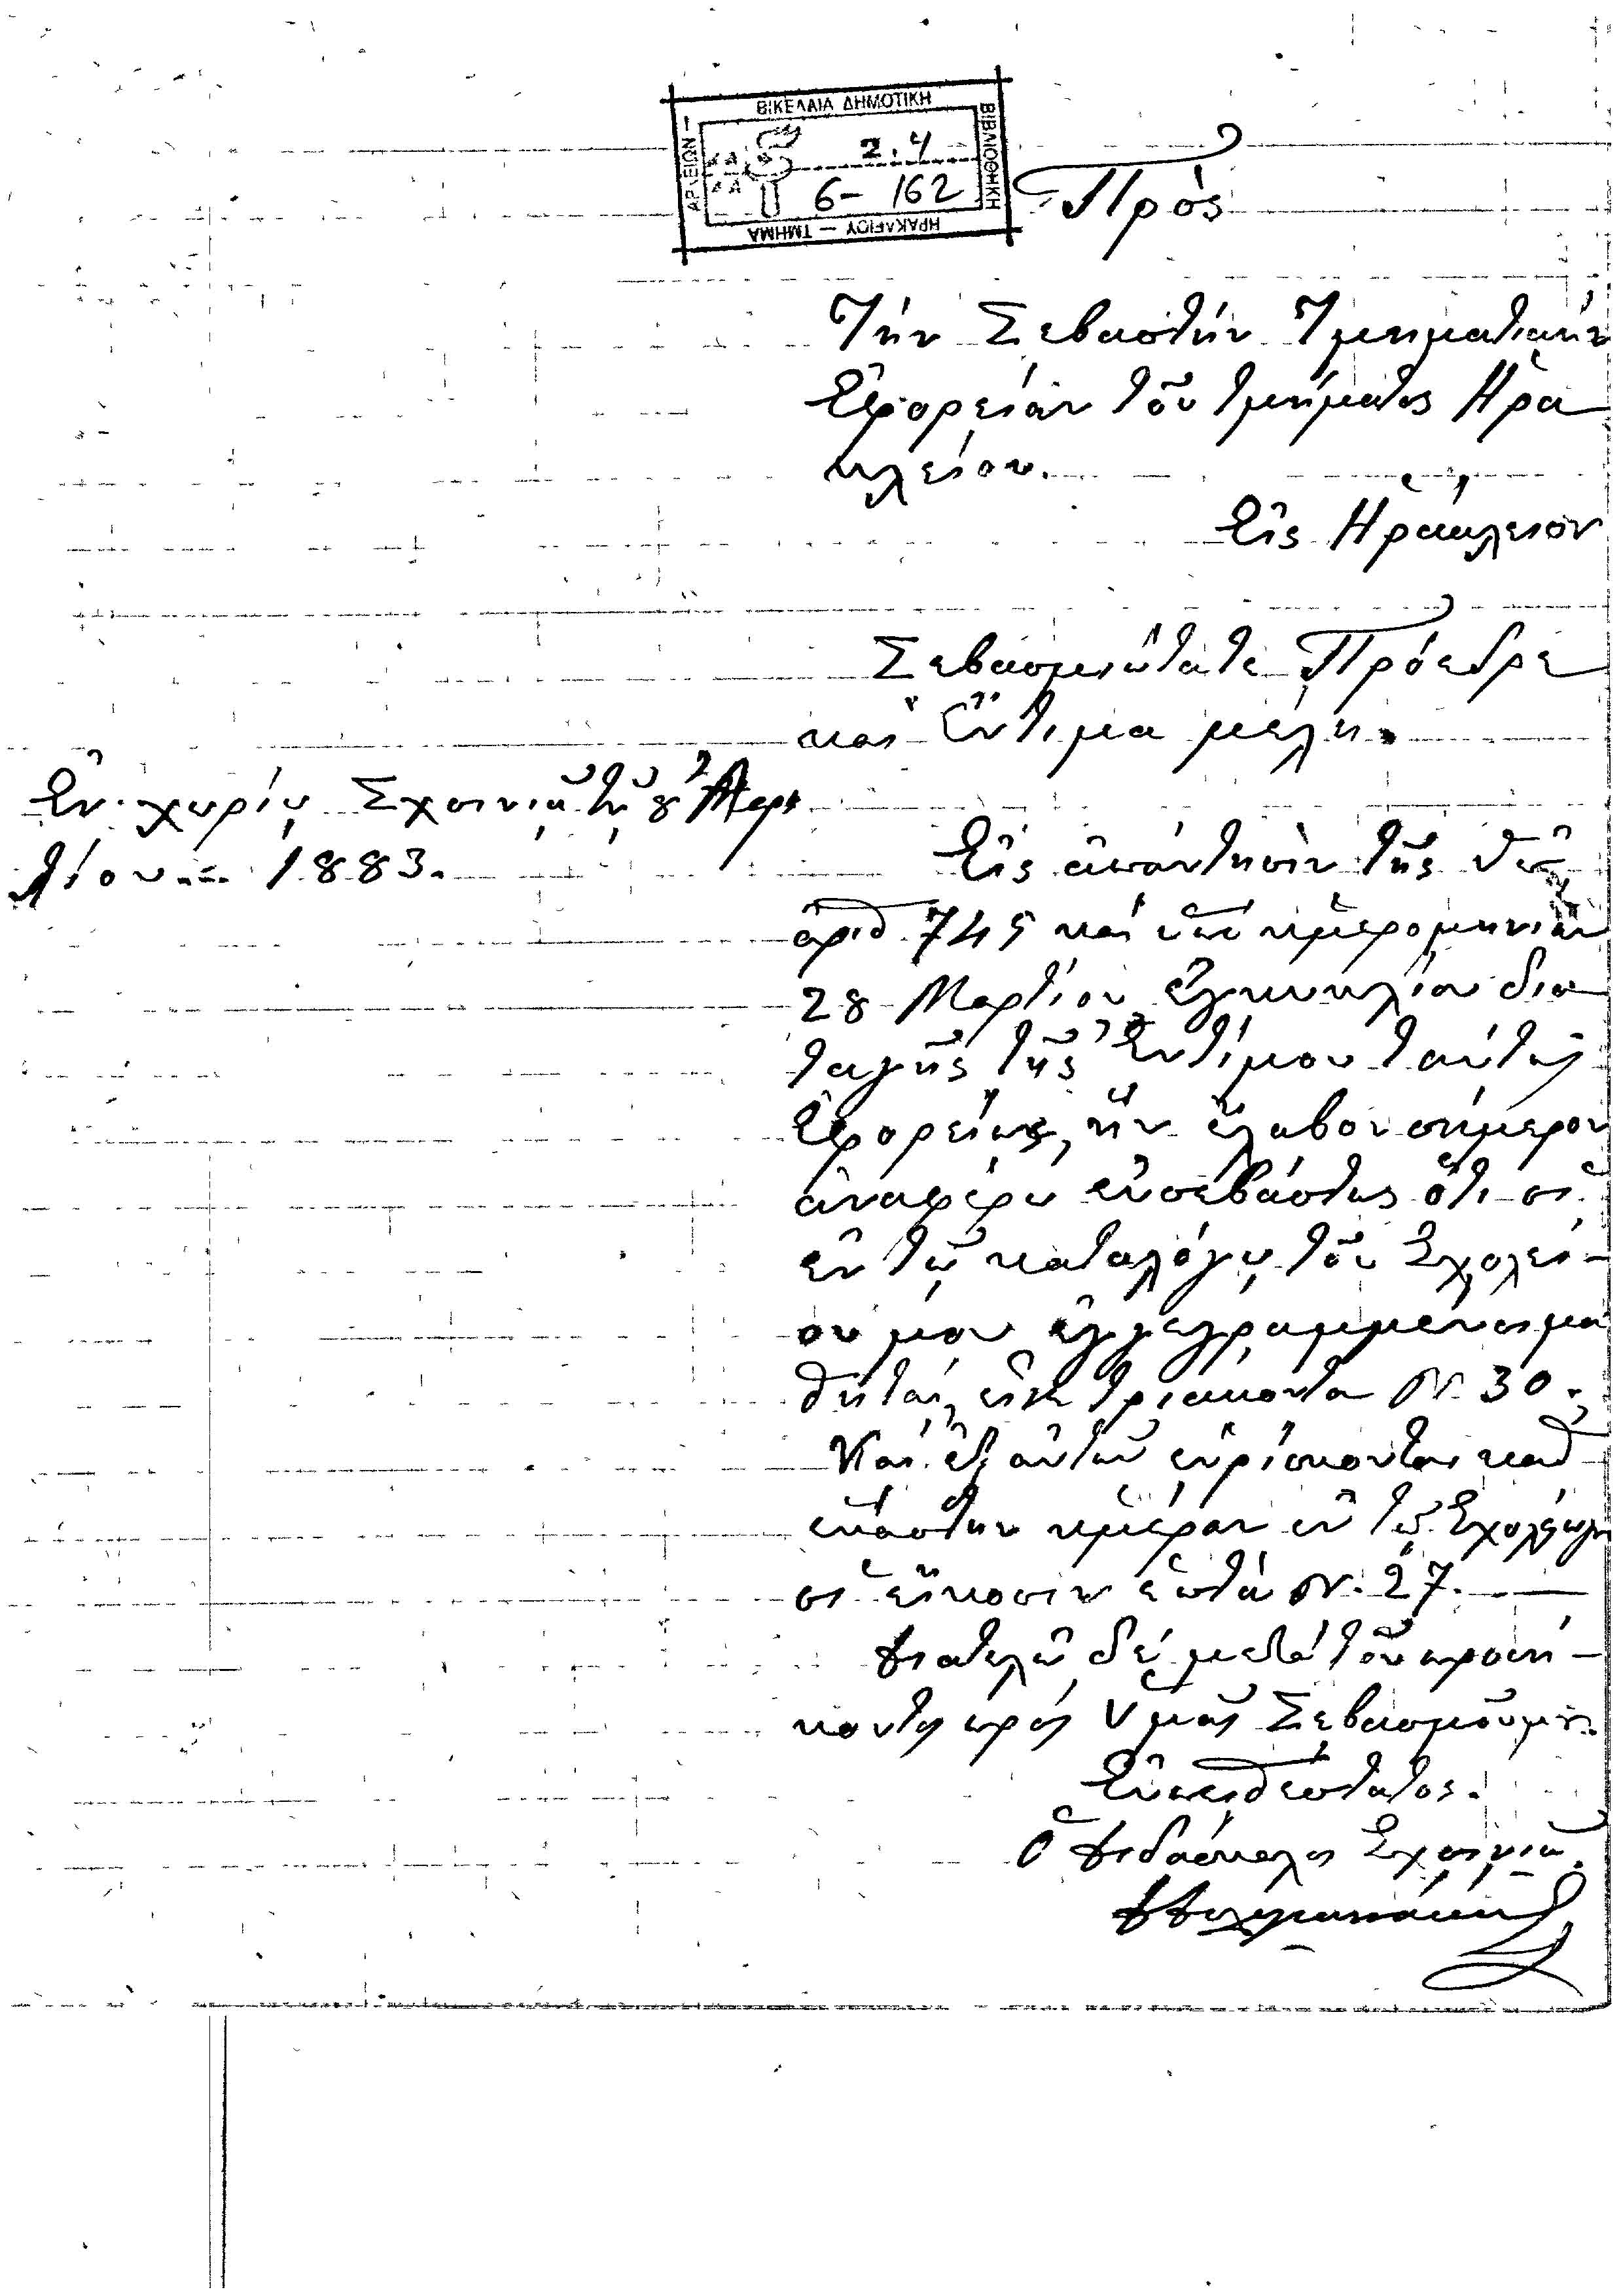 ΒΙΚΕΛΑΙΑ ΔΗΜΟΤΙΚΗ
ΒΙΒΛΙΟΘΗΚΗ
ΗΡΑΚΛΕΙΟΥ — ΤΜΗΜΑ
ΑΡΧΕΙΩΝ —
2.4
6- 162
Πρὸς
Τὴν Σεβαστὴν Τμηματικὴν
Ἐφορείαν τοῦ τμήματος Ἡρα
κλείου.
Εἰς Ἡράκλειον
Σεβασμιώτατε Πρόεδρε
καὶ Ἔντιμα μέλη.
Ἐν χωρίῳ Σχοινιᾷ τῇ
τίου 1883.
Εἰς ἀπάντησιν τῆς ὑπ
ἀριθ. 745 καὶ ὑπὸ ἡμερομηνίαν
28 Μαρτίου ἐγκυκλίου δια
ταγῆς τῆς Ἐντίμου ταύτης
Ἐφορείας, ἣν ἔλαβον σήμερον
ἀναφέρω εὐσεβάστως ὅτι οἱ
ἐν τῷ καταλόγῳ τοῦ Σχολεί-
ου μου ἐγγεγραμμένοι μα
θηταὶ, εἰσὶ τριάκοντα Ν. 30.
Καὶ ἐξ αὐτῶν εὑρίσκονται καθ
ἑκάστην ἡμέραν ἐν τῷ Σχολείῳ
οἱ εἴκοσιν ἑπτὰ Ν. 27.
Διατελῶ δὲ μετὰ τοῦ προσή-
κοντος πρὸς Ὑμᾶς Σεβασμοῦ μου.
Εὐπειθέστατος.
Ὁ Διδάσκαλος Σχοινιᾶ.